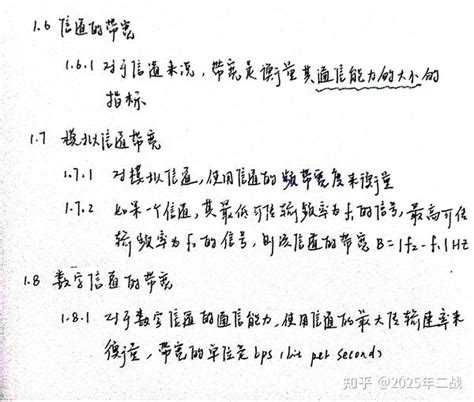 1.6 信道的带宽
1.6.1 对于信道来说，带宽是衡量其通信能力的大小的
指标
1.7 模拟信道带宽
1.7.1 对模拟信道，使用信道的频带宽度来衡量
1.7.2 如果一个信道，其最低可传输频率为f₁的信号，最高可传
输频率为f₂的信号，则该信道的带宽B=|f₂-f₁|HZ
1.8 数字信道的带宽
1.8.1 对于数字信道的通信能力，使用信道的最大传输速率来
衡量，带宽的单位是bps (bit per second)
知乎 @2025年二战